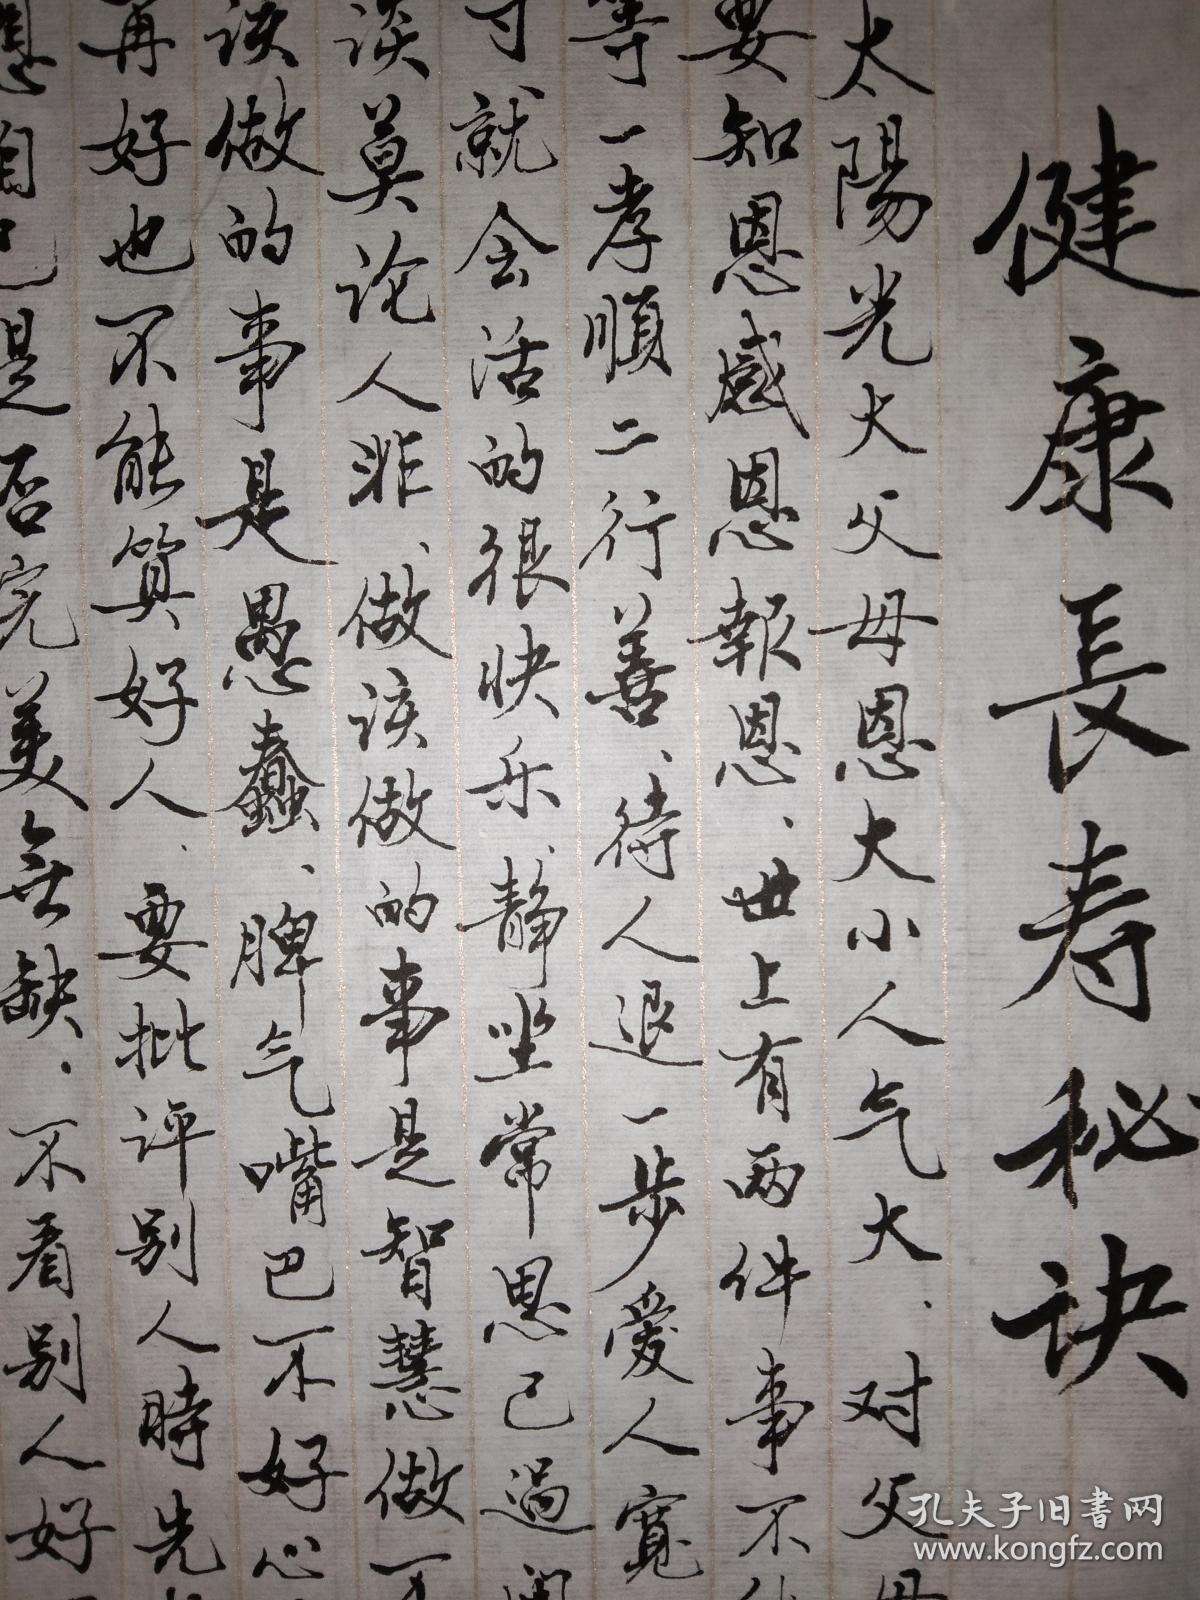 健康長寿秘诀
太陽光大父母恩大小人气大、对父母
要知恩感恩報恩、世上有两件事不能
等一孝順二行善、待人退一步爱人寬
寸就会活的很快乐、静坐常思己過閑
谈莫论人非、做该做的事是智慧做不
该做的事是愚蠢、脾气嘴巴不好心
再好也不能算好人、要批评别人時先
想自己是否完美無缺、不看别人好
孔夫子旧書网
www.kongfz.com